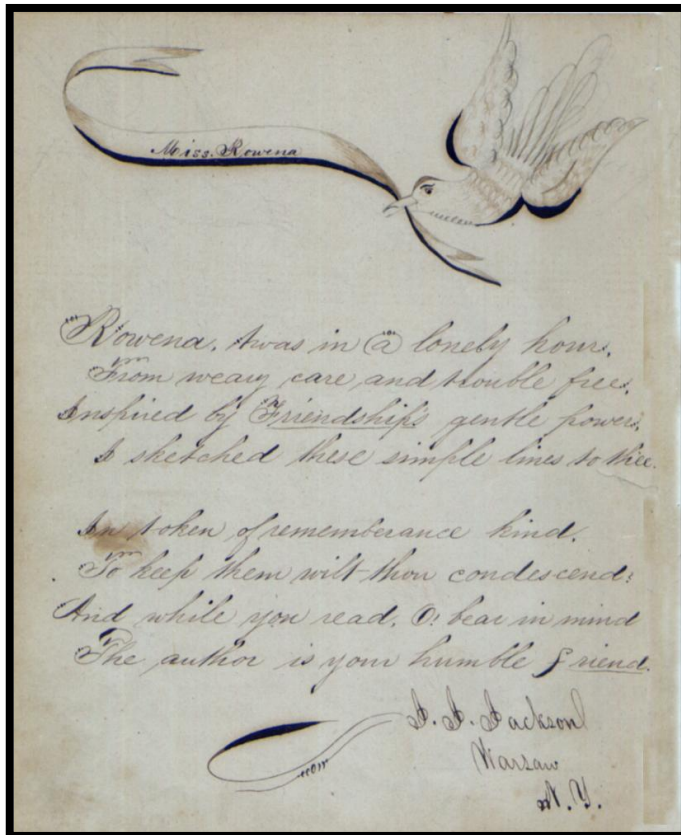 Miss. Rowena
Rowena, twas in a lonely hour,
From weary care and trouble free,
Inspired by Friendship's gentle power,
I sketched these simple lines to thee.
In token of rememberance kind,
To keep them wilt thou condescend:
And while you read, O! bear in mind
The author is your humble friend.
J. J. Jackson
Warsaw
N.Y.